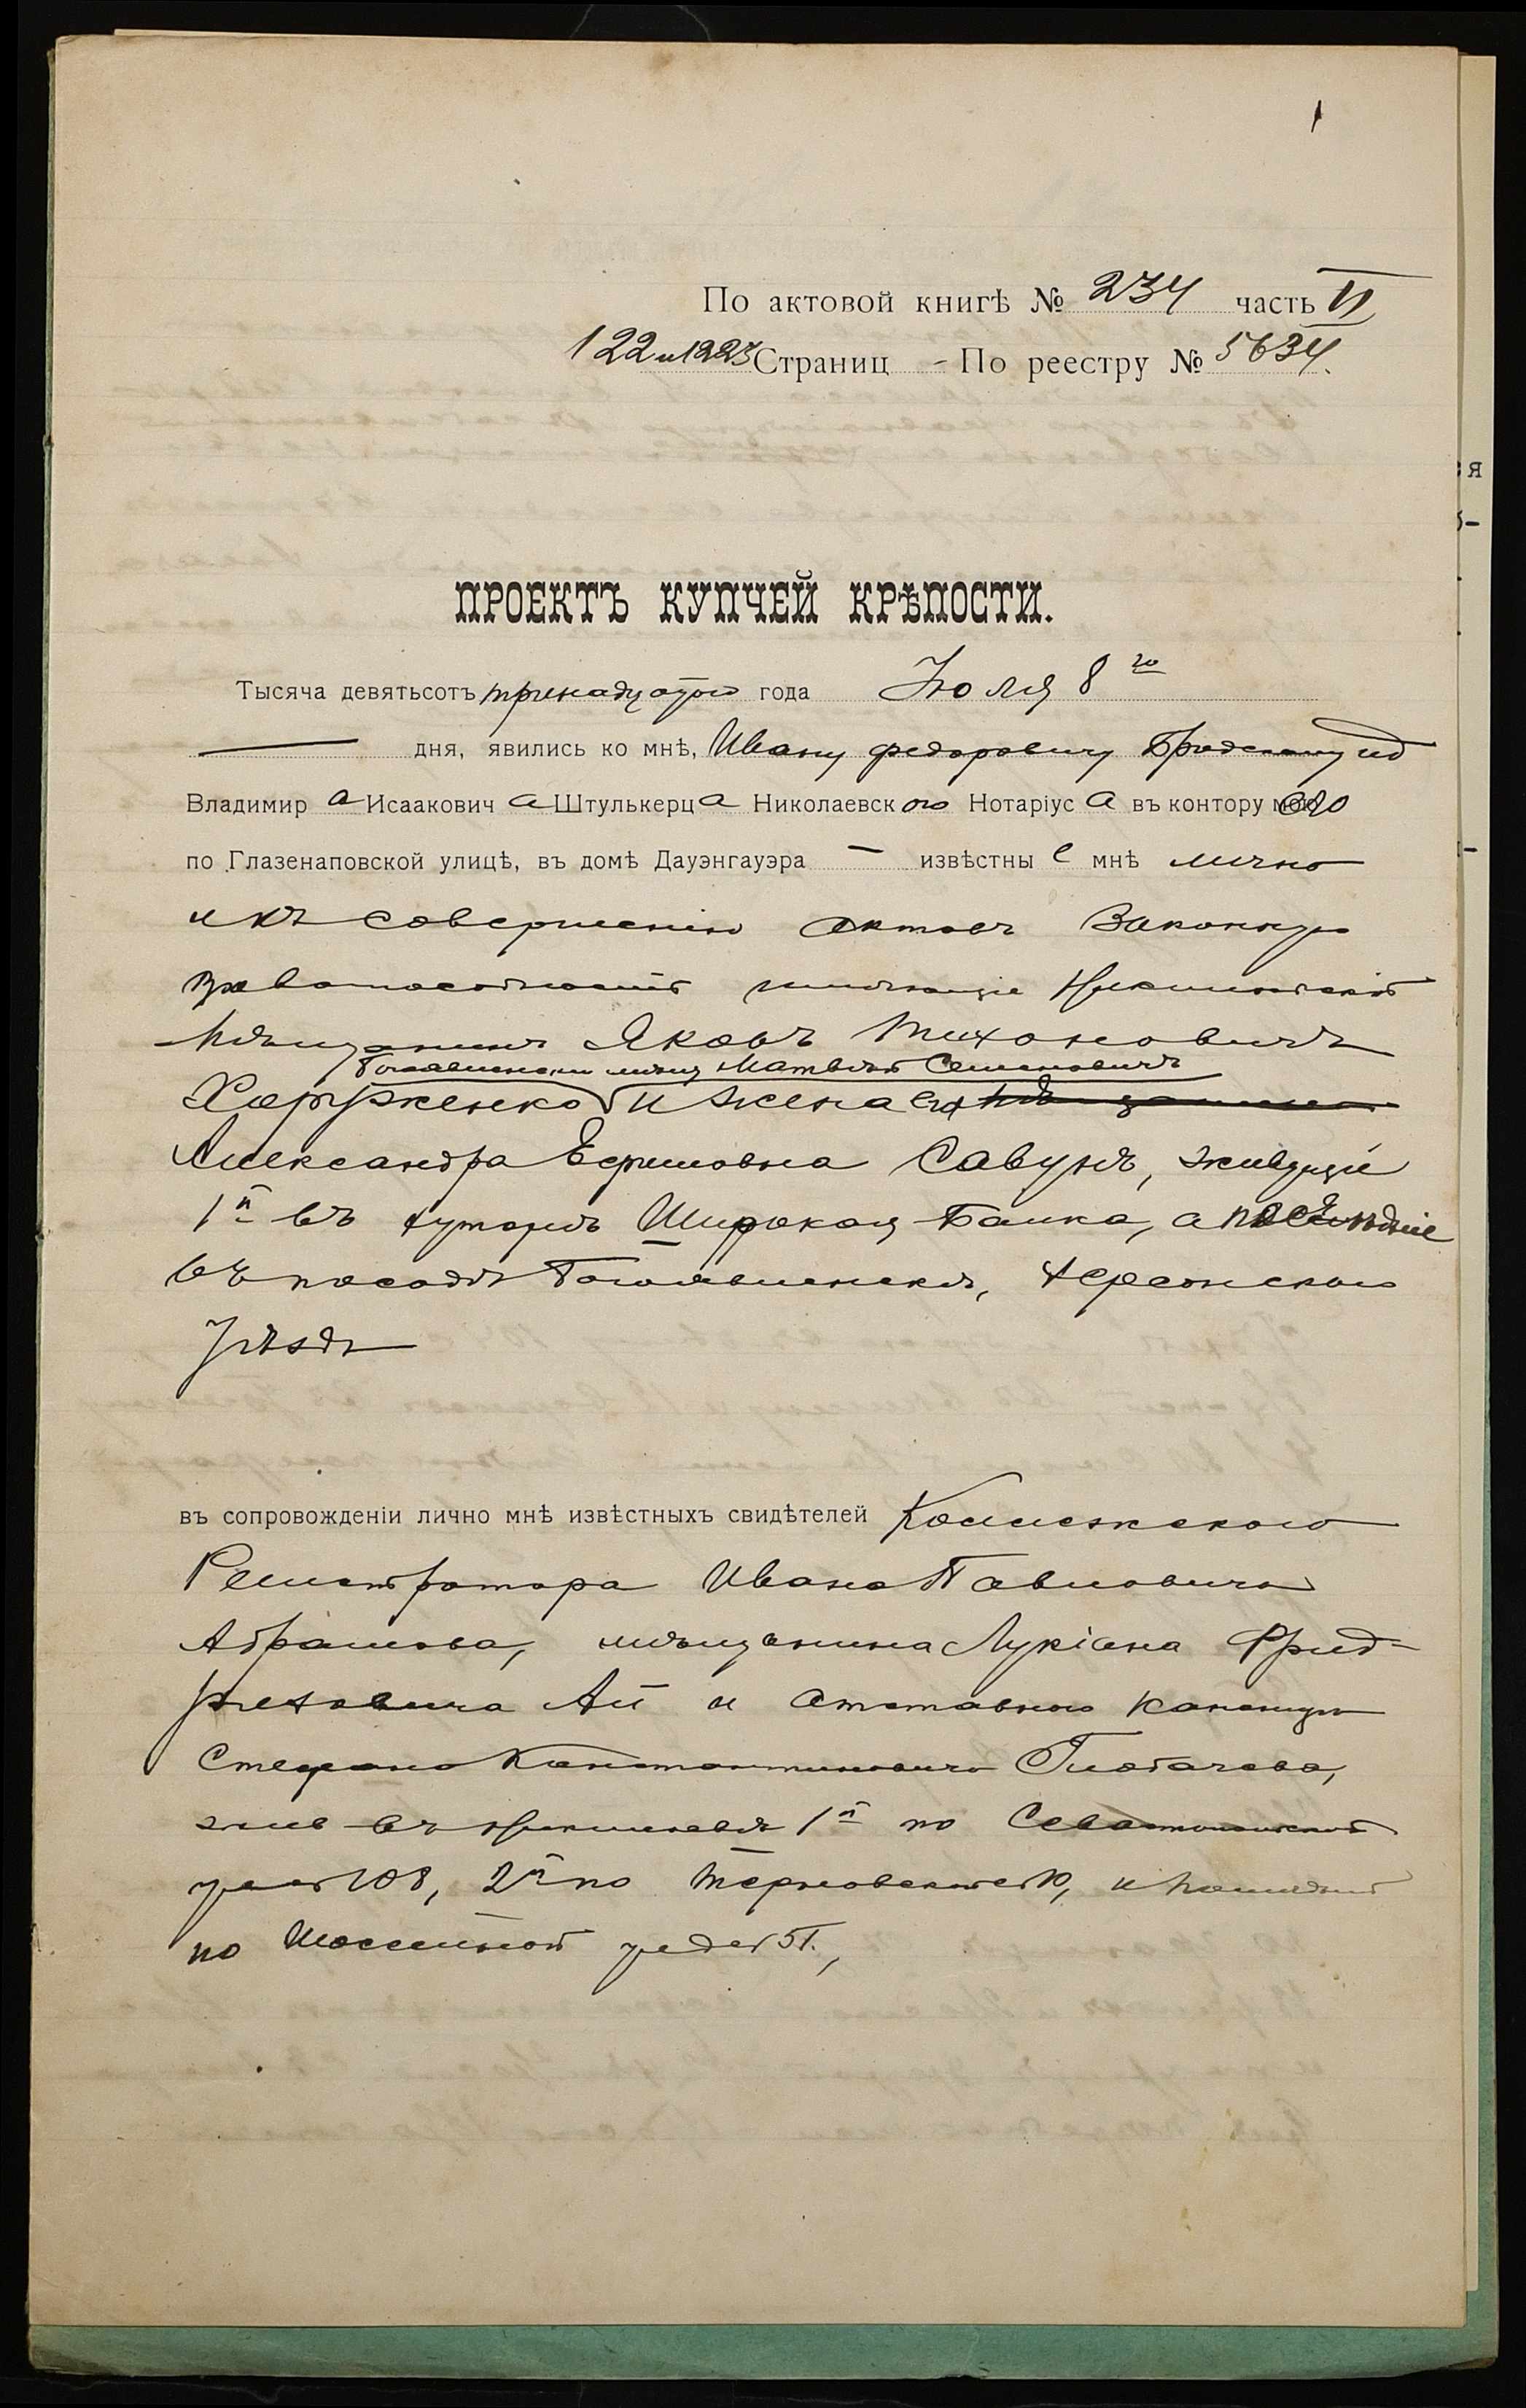 1
По актовой книгѣ № 234 часть II
122 и 1223 Страниц - По реестру № 5634.
ПРОЕКТЪ КУПЧЕЙ КРѢПОСТИ.
Тысяча девятьсотъ тринадцатого года Іюля 8го
дня, явились ко мнѣ, Ивану Федоровичу Бродскому ид
Владимира Исааковича Штулькерца Николаевского Нотаріуса въ контору его
по Глазенаповской улицѣ, въ домѣ Дауэнгауэра - извѣстные мнѣ лично
и къ совершенію актовъ законную
правоспособность имѣющіе Николаевскій
Мѣщанинъ Яковъ Тихоновичъ
Богоявленскій мѣщ Матвѣй Семеновичъ
Хоржженко и жена его
Александра Ефимовна Савунъ, живущіе
1й въ хуторѣ Широкая Балка, а послѣдніе
въ посадѣ Богоявленскѣ, Херсонского
уѣзда
въ сопровожденіи лично мнѣ извѣстныхъ свидѣтелей Коллежского
Регистратора Ивана Павловича
Абрамова, мѣщанина Лукіана Фрид-
риховича Ай и отставного
Стефана Константиновича Глобачева,
жив въ Николаевѣ 1й по Севастопольской
ул 108, 2й по Терновской 10, и послѣдній
по Шоссейной ул д 51.,
я
б-
-